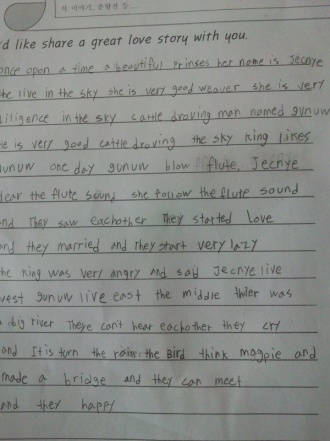 'd like share a great love story with you.
once opon a time a beautiful prinses her name is Jecnye
she live in the sky she is very good weaver she is very
diligence in the sky cattle droving man named gunuw
he is very good cattle droving the sky king likes
gunuw one day gunuw blow flute, Jecnye
Hear the flute sound she follow the flute sound
and They saw eachother They started love
and they married and They start very lazy
the King was very angry and sad Jecnye live
west gunuw live east the middle was
a big river There can't hear eachother they cry
and It is turn the rain the Bird think magpie and
made a bridge and they can meet
and they happy